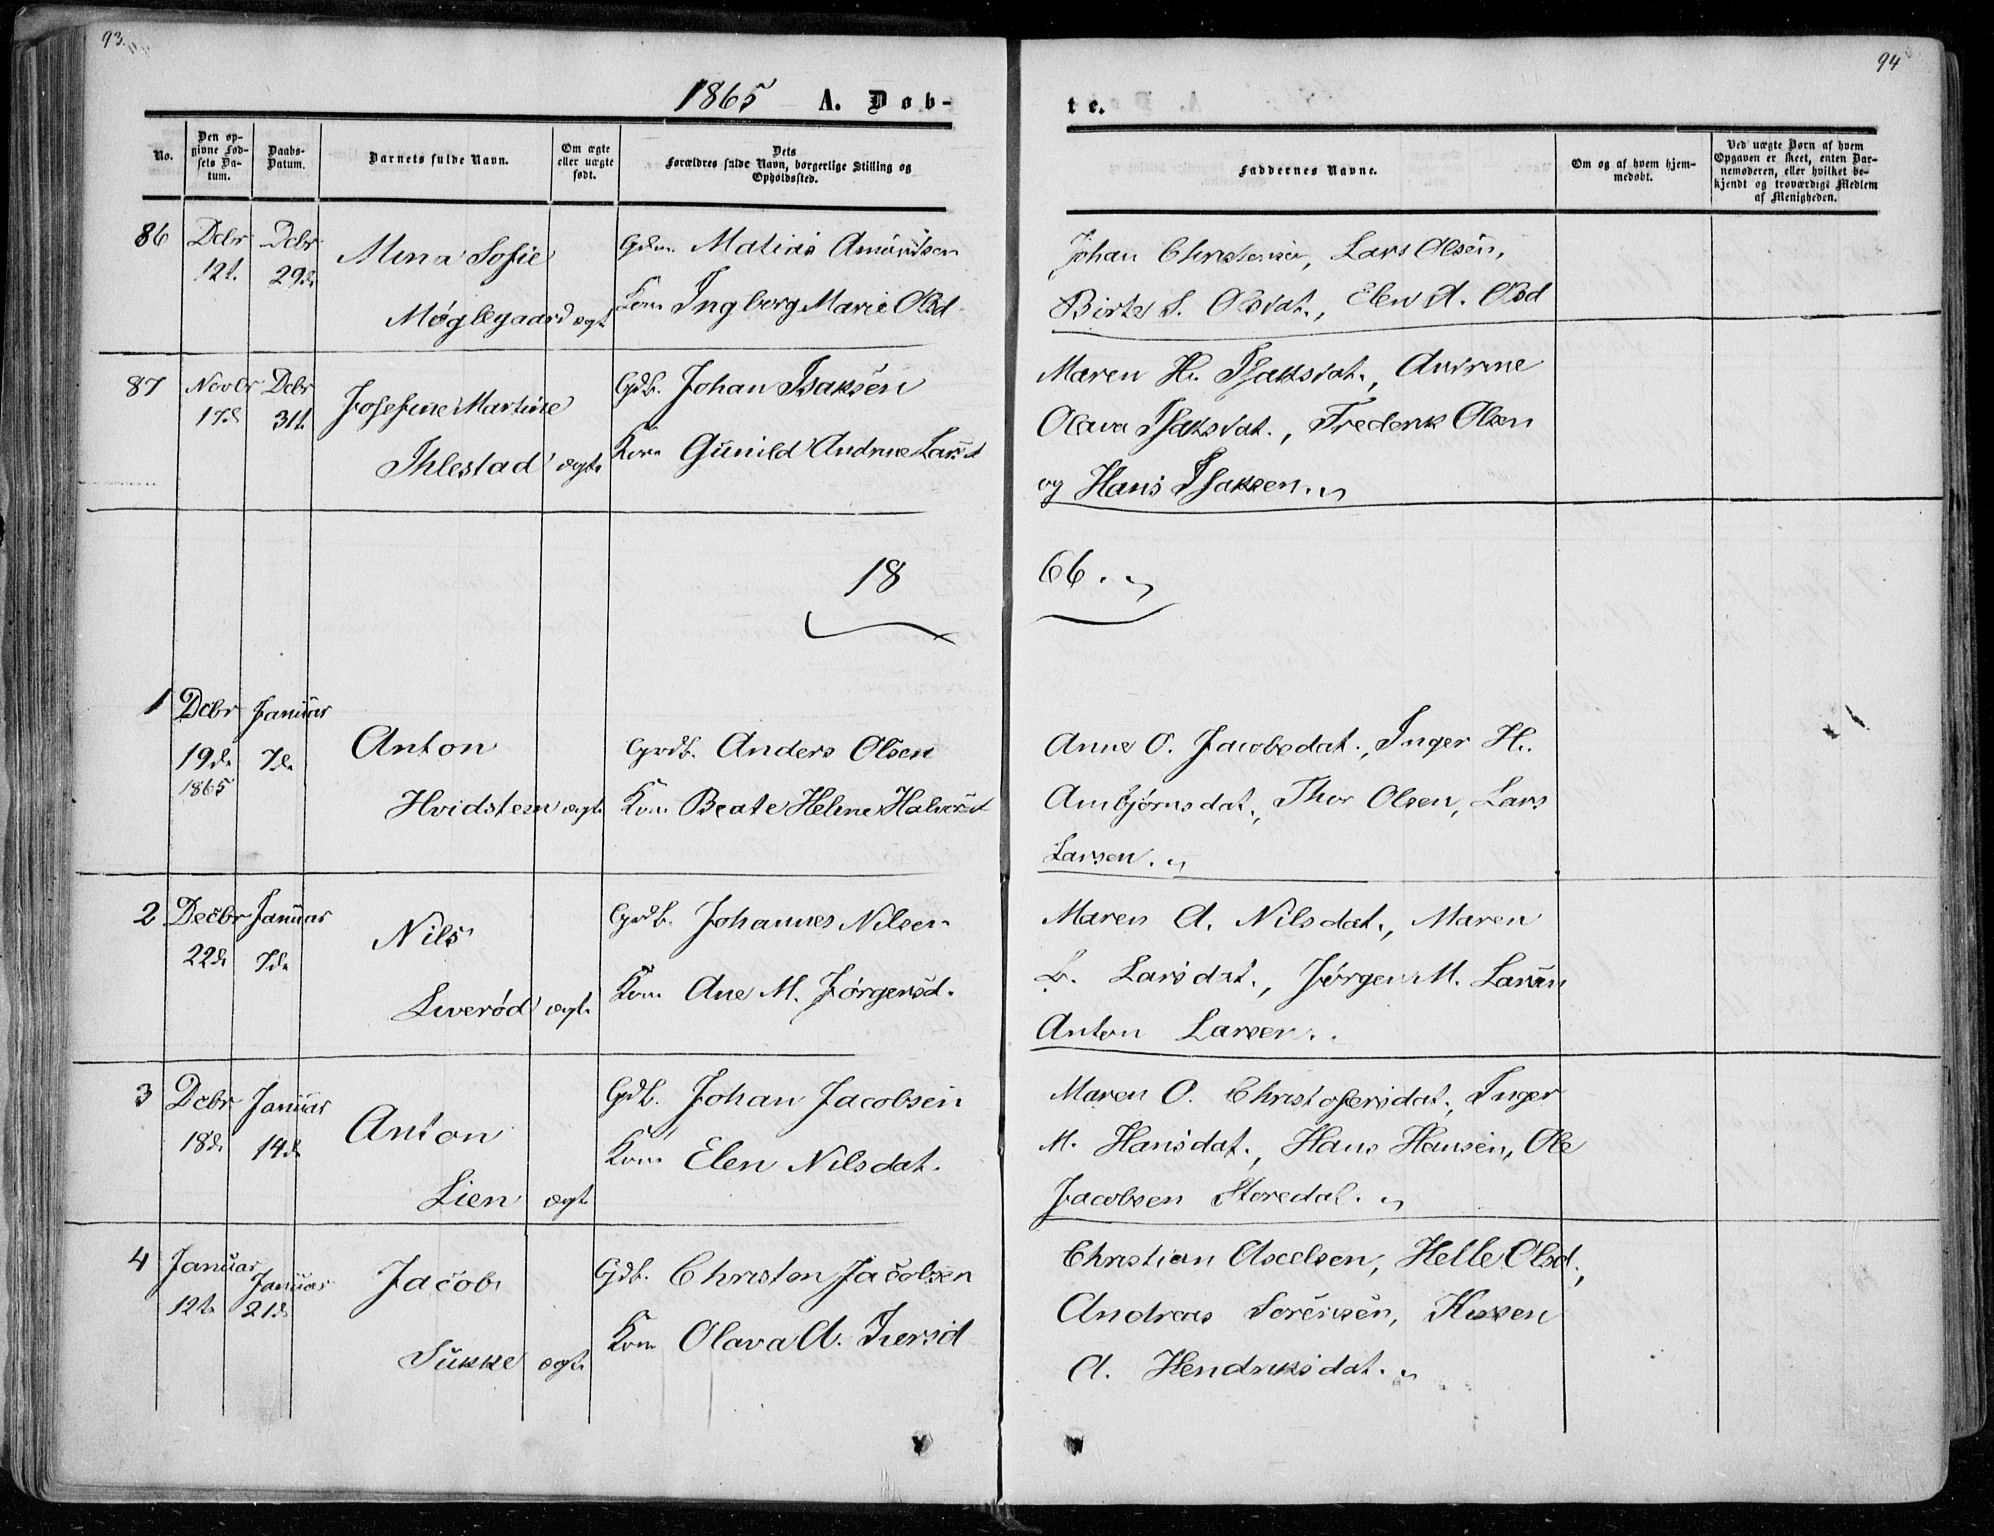 93.
94
1865 A. Døb-
te.
No.
Den op-
givne Fød-
sels Da-
tum.
Daabs-
Datum.
Barnets fulde Navn.
Om ægte
eller uægte
født.
Dets
Forældres fulde Navn, borgerlige Stilling og
Opholdssted.
Faddernes Navne.
Om og af hvem hjem-
medøbt.
Ved uægte Børn af hvem
Opgaven er skeet, enten Bar-
nemoderen, eller hvilket be-
kjendt og troværdigt Medlem
af Menigheden.
86 Debr Debr Mina Sofie Gdm. Matias Amundsen
12t. 29de
Møglegaard ægt. Kom Ingborg Marie Olsd
Johan Christensen, Lars Olsen,
Birte S. Olsdat., Elen A. Olsd
87 Novbr Debr Josefine Martine Gdb. Johan Isaksen
17de 31t.
Ihlestad ægt. Kone Gunild Andrine Larsd
Maren H. Isaksdat., Andrine
Olava Isaksdat., Frederik Olsen
og Hans Isaksen.
18 66.
1 Debr Januar
19de 7de Anton Grdb. Anders Olsen
1865
Hvidsteen ægt. Kone Beate Heline Halvorsd
Anne O. Jacobsdat., Inger H.
Ambjørnsdat., Thor Olsen, Lars
Larsen.
2 Decbr Januar Nils Grdb. Johannes Nilsen
22de 7de
Liverød ægt. Kone Ane M. Jørgensd.
Maren A. Nilsdat., Maren
L. Larsdat., Jørgen M. Larsen
Anton Larsen.
3 Debr Januar Anton Gdb. Johan Jacobsen
18de 14de
Lien ægt. Kone Elen Nilsdat.
Maren O. Christofersdat., Inger
M. Hansdat., Hans Hansen, Ole
Jacobsen Storedal.
4 Januar Januar Jacob Gdb. Christen Jacobsen
12te 21de
Sukke ægt. Kone Olava A. Iversd
Christian Axelsen, Helle Olsd.,
Andreas Sørensen,
A. Hendriksdat.